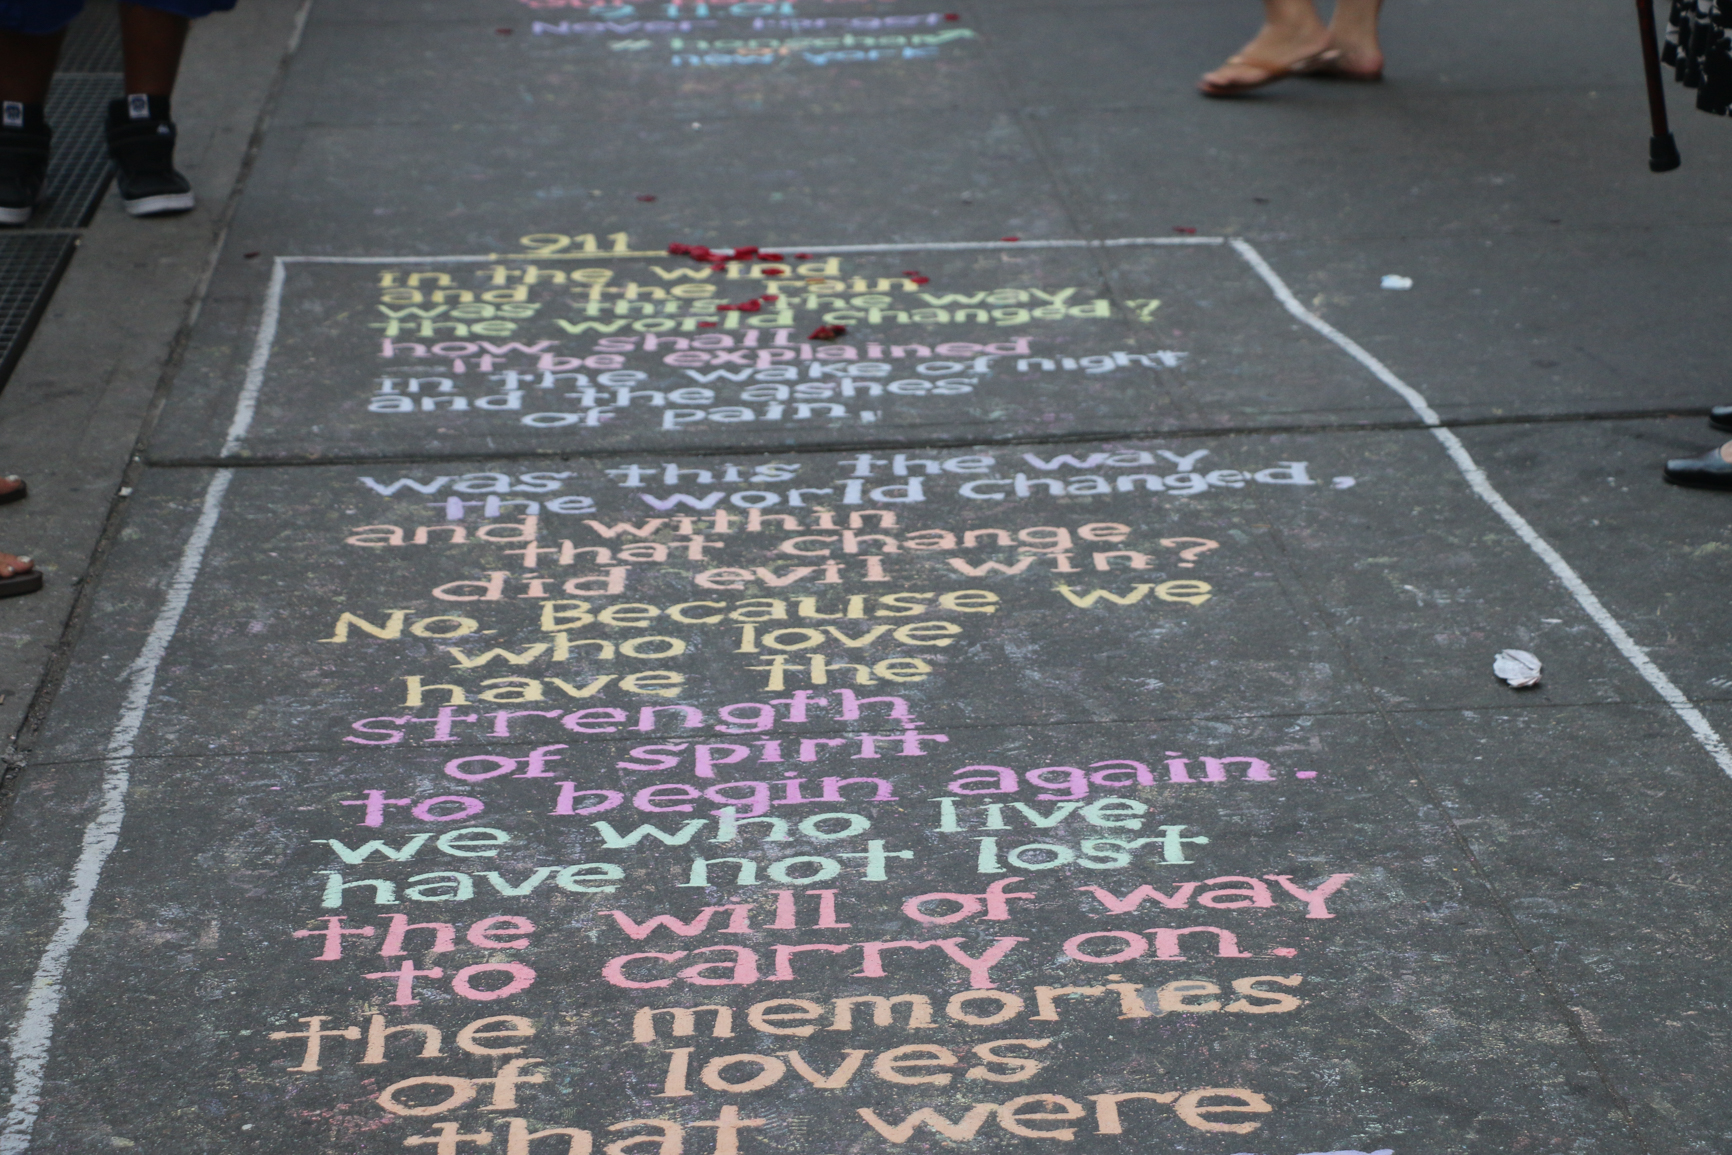 9 11 01
Never Forget
new york
911
in the wind
and the rain
was this the way
the world changed?
how shall
it be explained
in the wake of night
and the ashes
of pain,
was this the way
the world changed,
and within
that change
did evil win?
No. Because we
who love
have the
strength
of spirit
to begin again.
we who live
have not lost
the will of way
to carry on.
the memories
of loves
that were